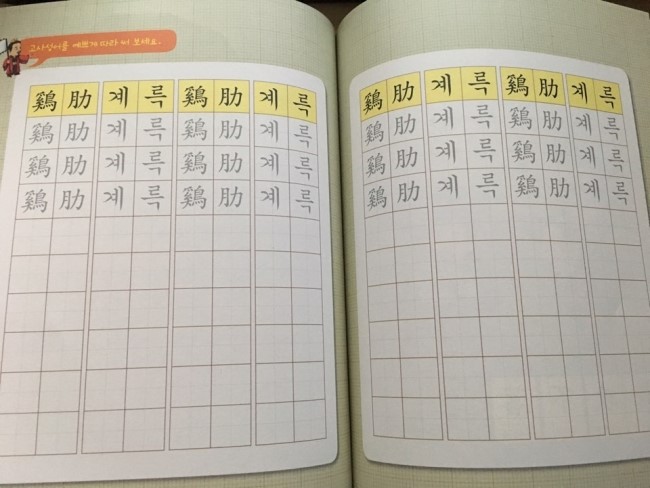 고사성어를 예쁘게 따라 써 보세요.
鷄 肋 계 륵 鷄 肋 계 륵
鷄 肋 계 륵 鷄 肋 계 륵
鷄 肋 계 륵 鷄 肋 계 륵
鷄 肋 계 륵 鷄 肋 계 륵
鷄 肋 계 륵 鷄 肋 계 륵
鷄 肋 계 륵 鷄 肋 계 륵
鷄 肋 계 륵 鷄 肋 계 륵
鷄 肋 계 륵 鷄 肋 계 륵